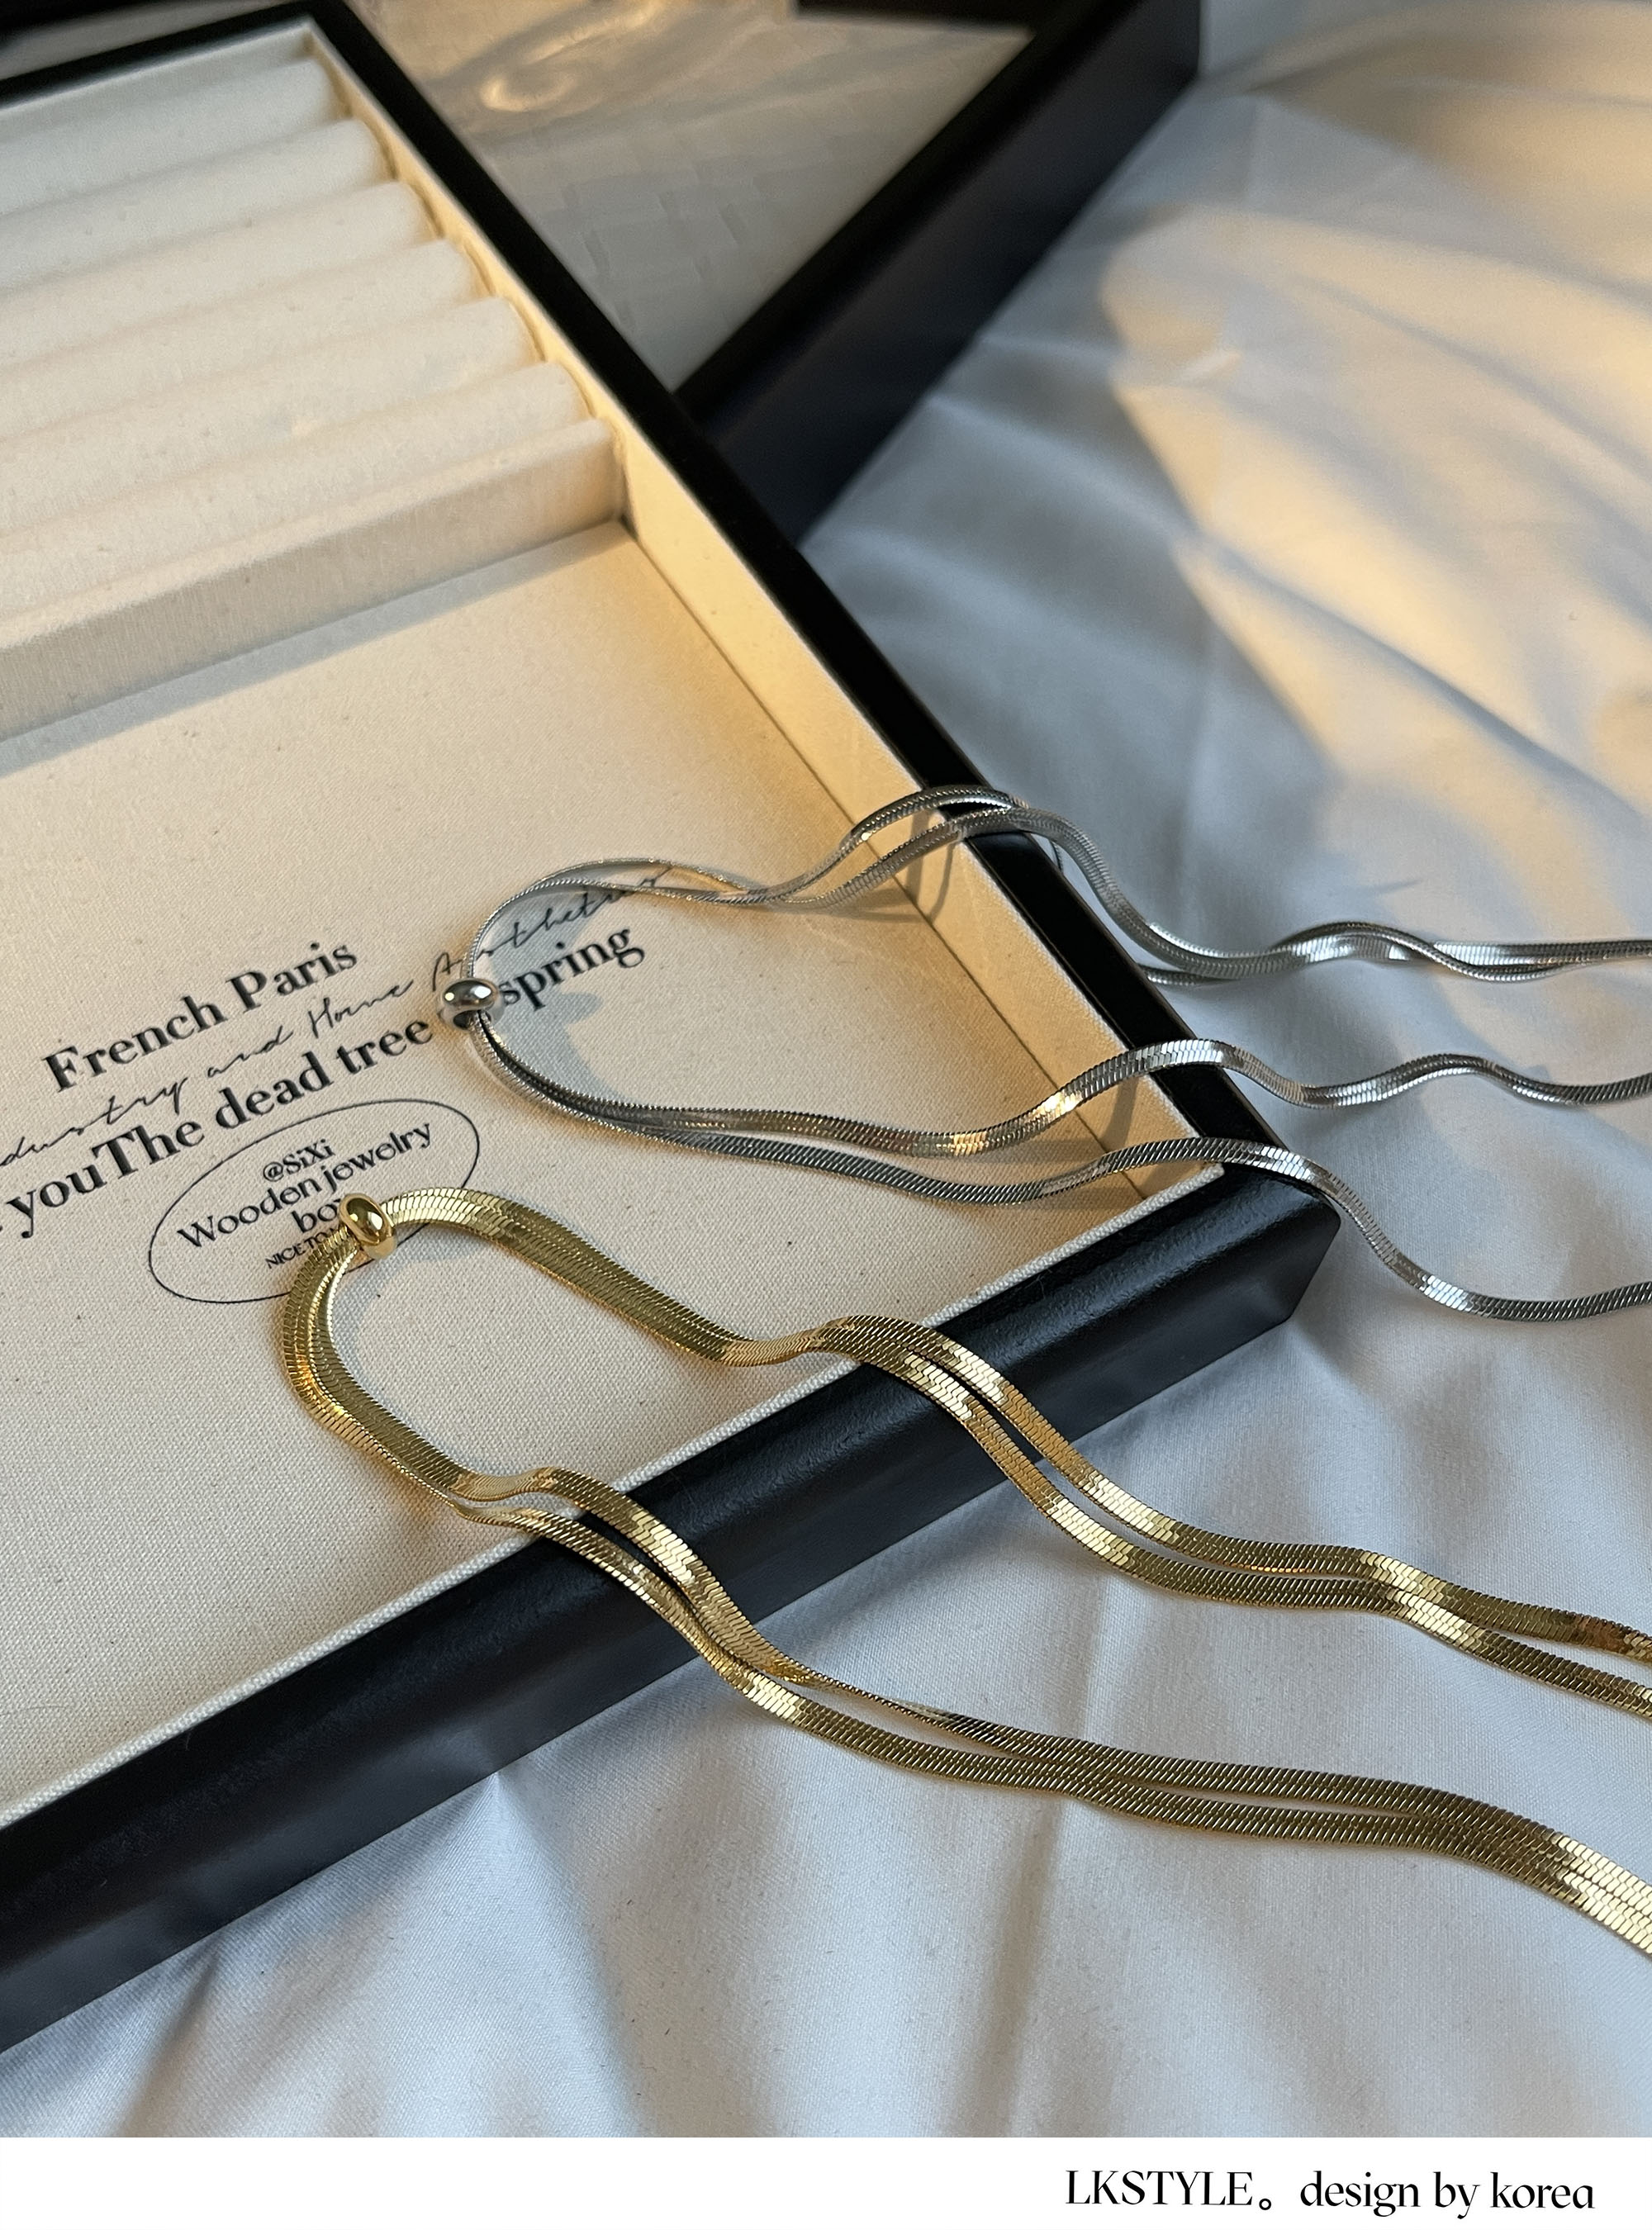 French Paris
dustry and Home Aesthetics
youThe dead tree spring
@SiXi
Wooden jewelry
NICE TO
LKSTYLE。design by korea